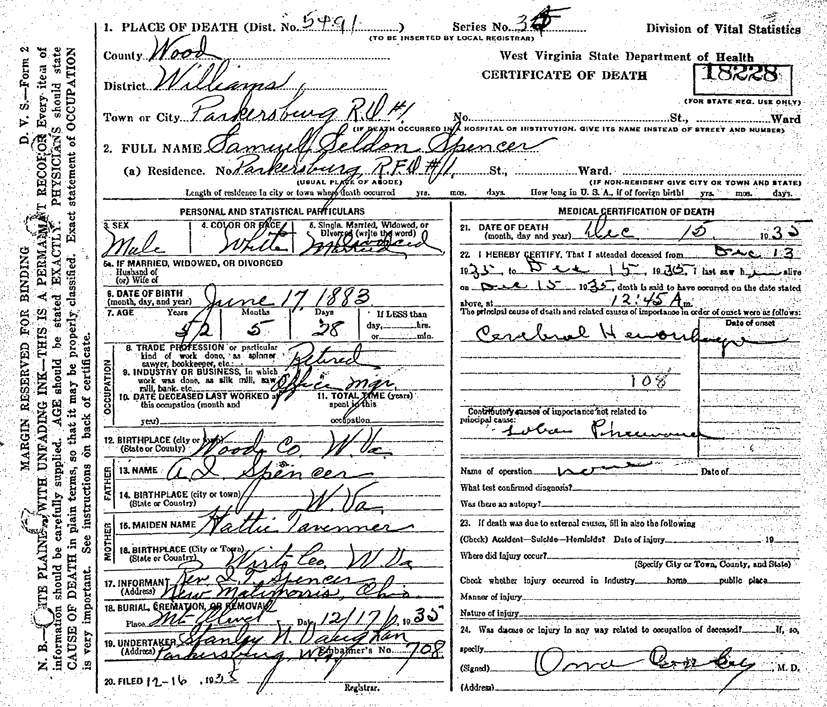 MARGIN RESERVED FOR BINDING D. V. S.—Form 2
N. B.— PLAINLY WITH UNFADING INK—THIS IS A PERMANENT RECORD Every item of
information should be carefully supplied. AGE should be stated EXACTLY. PHYSICIANS should state
CAUSE OF DEATH in plain terms, so that it may be properly classified. Exact statement of OCCUPATION
is very important. See instructions on back of certificate.
1. PLACE OF DEATH (Dist. No. 5491) Series No. Division of Vital Statistics
(TO BE INSERTED BY LOCAL REGISTRAR)
County Wood West Virginia State Department of Health
District Williams CERTIFICATE OF DEATH 18228
(FOR STATE REG. USE ONLY)
Town or City Parkersburg R.D #1 No. St., Ward
(IF DEATH OCCURRED IN A HOSPITAL OR INSTITUTION, GIVE ITS NAME INSTEAD OF STREET AND NUMBER)
2. FULL NAME Samuel Seldon Spencer
(a) Residence. No. Parkersburg R.F.D #1. St., Ward.
(USUAL PLACE OF ABODE) (IF NON-RESIDENT GIVE CITY OR TOWN AND STATE)
Length of residence in city or town where death occurred yrs. mos. days. How long in U. S. A., if of foreign birth? yrs. mos. days.
PERSONAL AND STATISTICAL PARTICULARS
3. SEX 4. COLOR OR RACE 5. Single, Married, Widowed, or
Divorced (write the word)
Male White
5a. IF MARRIED, WIDOWED, OR DIVORCED
Husband of
(or) Wife of
6. DATE OF BIRTH
(month, day, and year) June 17, 1883
7. AGE Years Months Days If LESS than
52 5 28 day, hrs.
or min.
OCCUPATION
8. TRADE PROFESSION or particular
kind of work done, as spinner
sawyer, bookkeeper, etc. Retired
9. INDUSTRY OR BUSINESS, in which
work was done, as silk mill, saw
mill, bank, etc. Office Mgr.
10. DATE DECEASED LAST WORKED at 11. TOTAL TIME (years)
this occupation (month and spent in this
year) occupation
12. BIRTHPLACE (city or town)
(State or County) Wood Co W. Va.
FATHER
13. NAME Spencer
14. BIRTHPLACE (city or town)
(State or County) W. Va
MOTHER
15. MAIDEN NAME Hattie Tavenner
16. BIRTHPLACE (City or Town)
(State or County) Wirt Co, W. Va
17. INFORMANT Rev. Spencer
(Address) New Matamoras, Ohio
18. BURIAL, CREMATION, OR REMOVAL
Place Mt Olivet Date 12/17/ 1935
19. UNDERTAKER Stanley N. Vaughan
(Address) Parkersburg, W. Embalmer's No. 708
20. FILED 12-16, 1935
Registrar.
MEDICAL CERTIFICATION OF DEATH
21. DATE OF DEATH
(month, day and year) Dec 15 1935
22. I HEREBY CERTIFY, That I attended deceased from Dec 13
1935 to Dec 15, 1935, I last saw him alive
on Dec 15 1935, death is said to have occurred on the date stated
above, at 12:45 A m.
The principal cause of death and related causes of importance in order of onset were as follows:
Date of onset
Cerebral Hemorrhage
108
Contributory causes of importance not related to
principal cause:
Lobar Pneumonia
Name of operation none Date of
What test confirmed diagnosis?
Was there an autopsy?
23. If death was due to external causes, fill in also the following
(Check) Accident—Suicide—Homicide? Date of injury 19
Where did injury occur?
(Specify City or Town, County, and State)
Check whether injury occurred in Industry home public place
Manner of injury
Nature of injury
24. Was disease or injury in any way related to occupation of deceased? If, so,
specify
(Signed) M. D.
(Address)